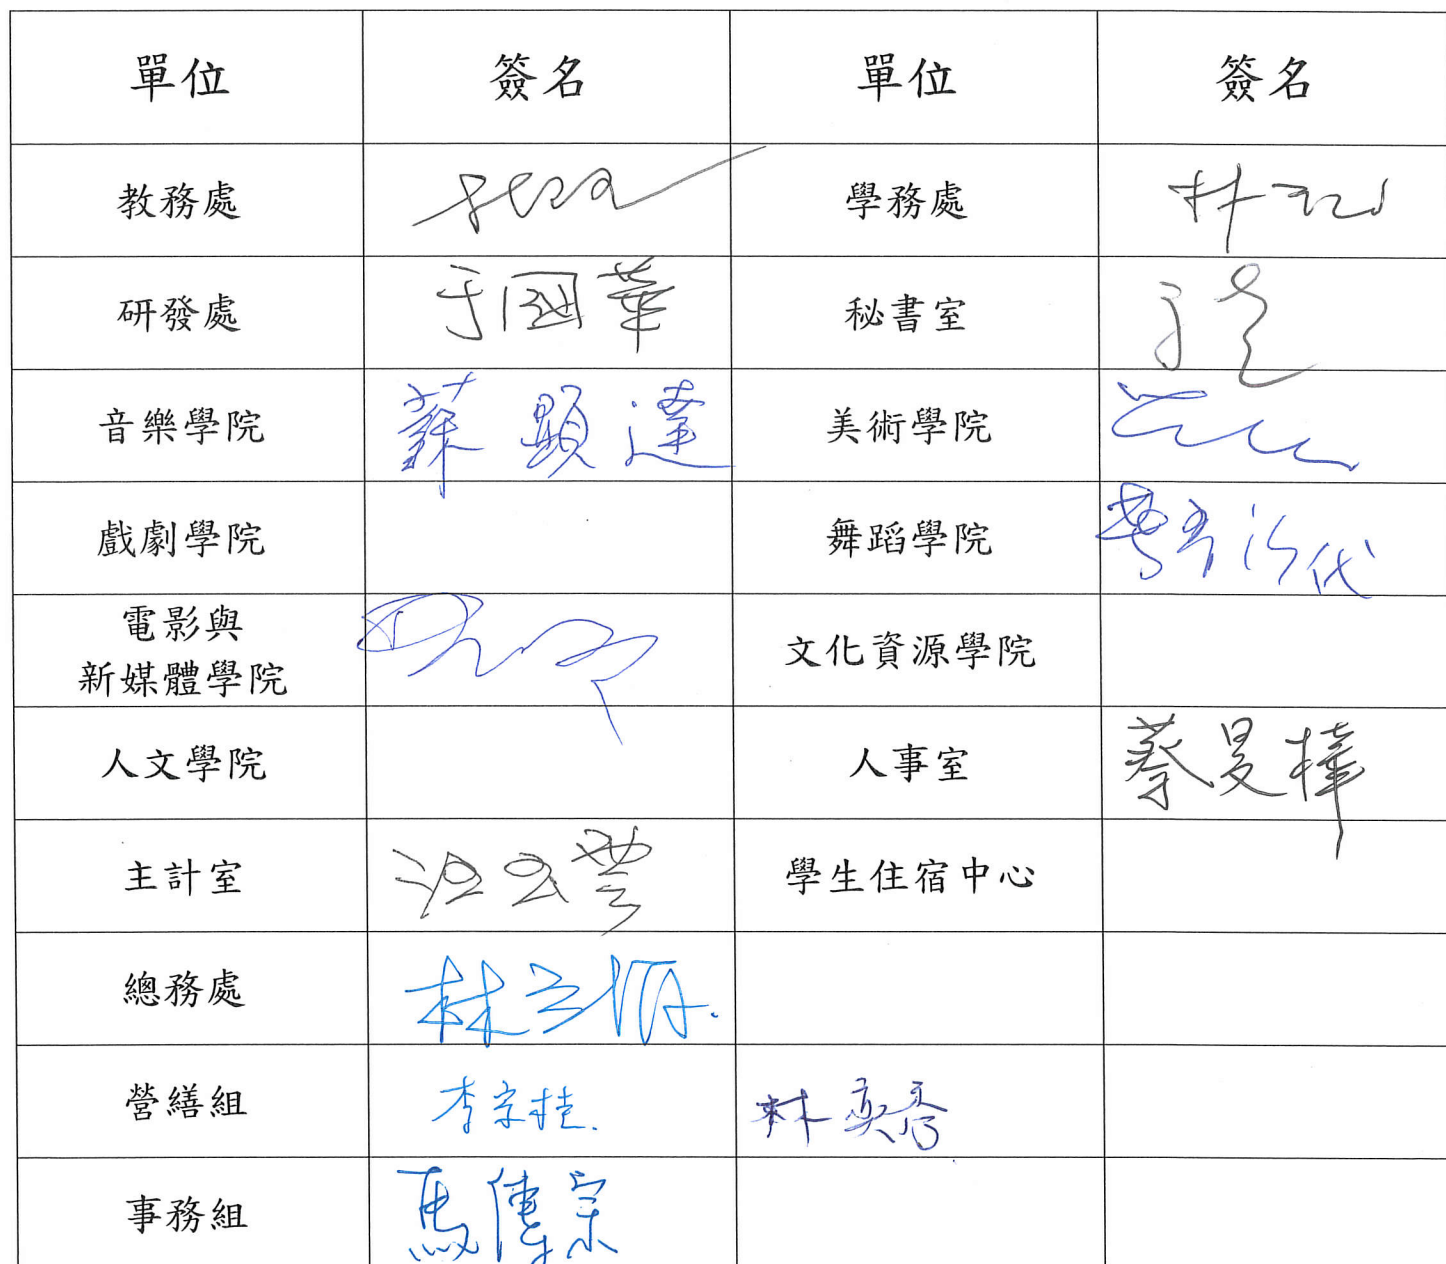 單位 簽名 單位 簽名
教務處 學務處 林
研發處 于國華 秘書室
音樂學院 蘇顯達 美術學院
戲劇學院 舞蹈學院 代
電影與
新媒體學院
文化資源學院
人文學院 人事室 蔡旻樺
主計室 學生住宿中心
總務處 林
營繕組 李宗桂. 林奕秀
事務組 馬傳宗